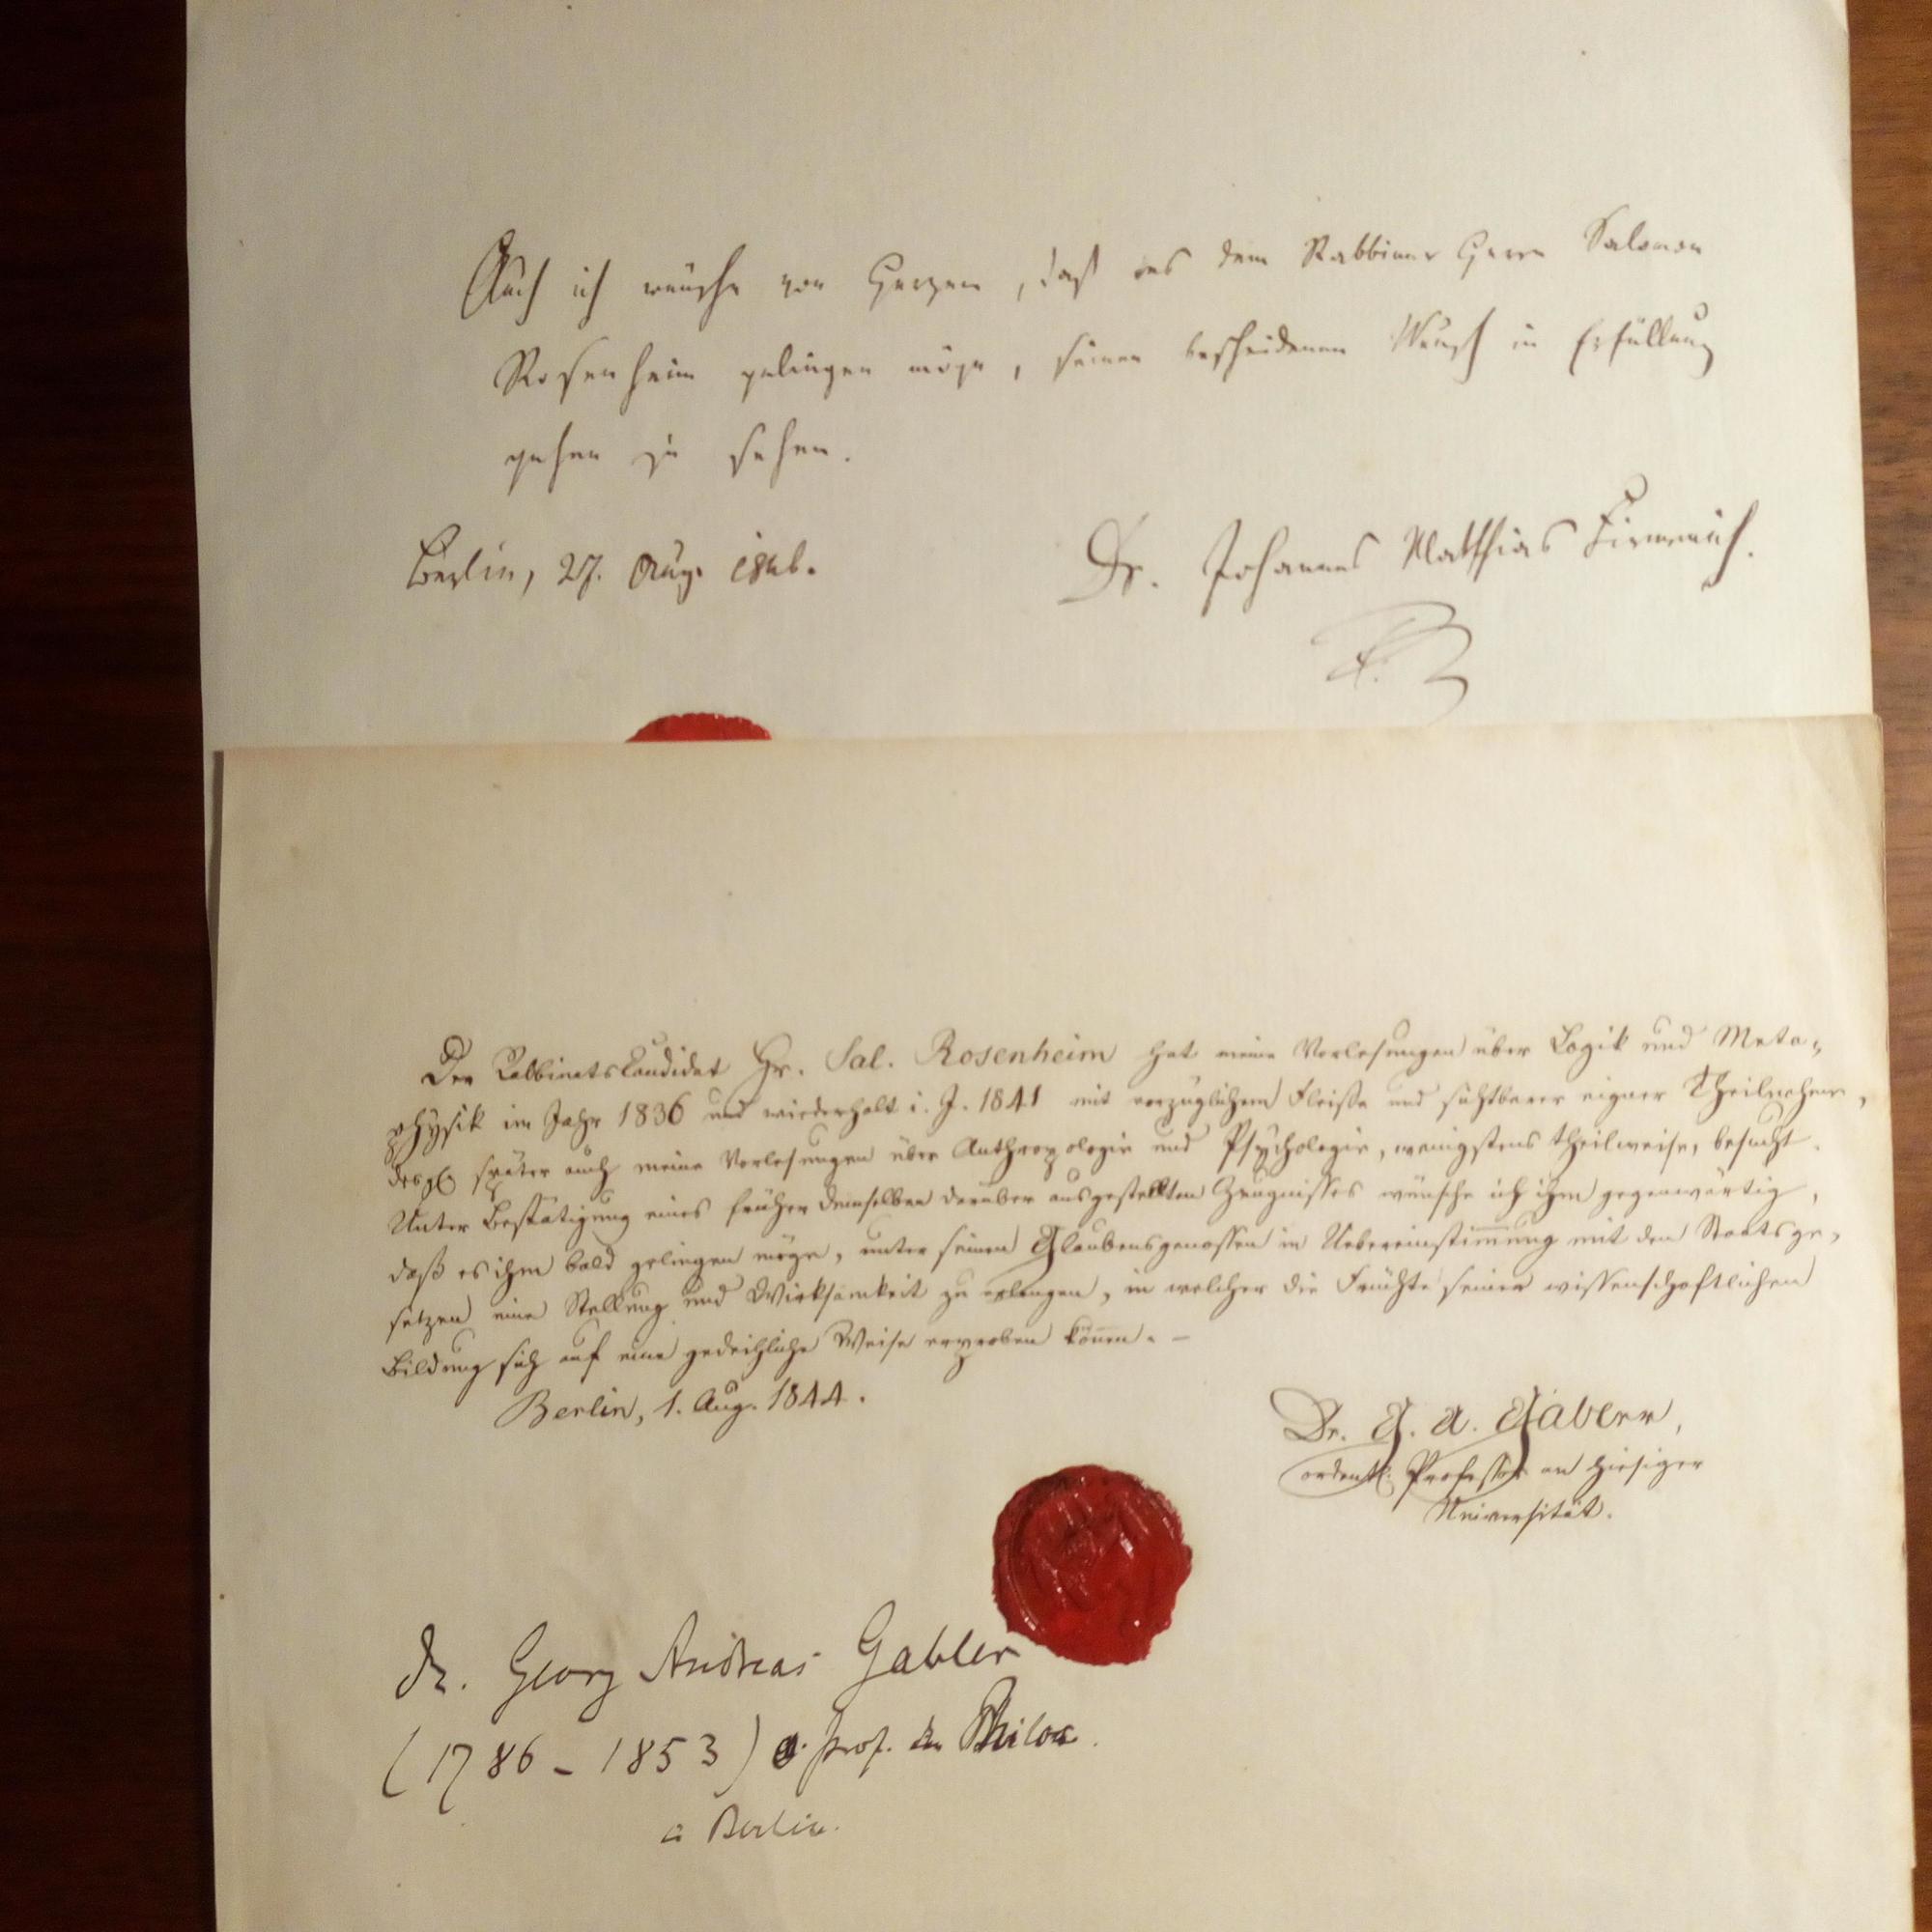 Auch ich wünsche von Herzen, daß es dem Rabbiner Herrn Salomon
Rosenheim gelingen möge, seinen bescheidenen Wunsch in Erfüllung
gehen zu sehen.
Berlin, 27. Aug. 1846.
Dr. Johannes Matthias Firmenich.
F.
Der Rabbinatskandidat Hr. Sal. Rosenheim hat meine Vorlesungen über Logik und Meta-
physik im Jahr 1836 und wiederholt i. J. 1841 mit vorzüglichem Fleiße und sichtbarer eigner Theilnahme,
desgl. später auch meine Vorlesungen über Anthropologie und Psychologie, wenigstens theilweise, besucht.
Unter Bestätigung eines früher demselben darüber ausgestellten Zeugnisses wünsche ich ihm gegenwärtig,
daß es ihm bald gelingen möge, unter seinen Glaubensgenossen in Uebereinstimmung mit den Staatsge-
setzen eine Stellung und Wirksamkeit zu erlangen, in welcher die Früchte seiner wissenschaftlichen
Bildung sich auf eine gedeihliche Weise erproben können. –
Berlin, 1. Aug. 1844.
Dr. G. A. Gabler,
ordentl. Professor an hiesiger
Universität.
Dr. Georg Andreas Gabler
(1786 - 1853) o. Prof. der Philos.
a Berlin.